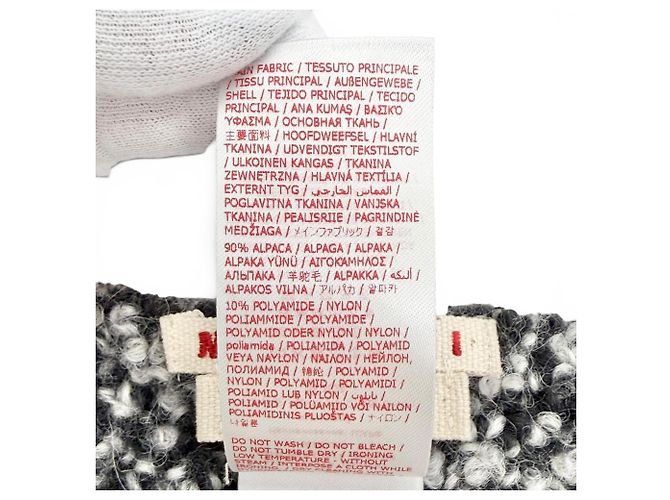 FABRIC / TESSUTO PRINCIPALE
/ TISSU PRINCIPAL / AUßENGEWEBE /
SHELL / TEJIDO PRINCIPAL / TECIDO
PRINCIPAL / ANA KUMAŞ / ΒΑΣΙΚΌ
ΎΦΑΣΜΑ / ОСНОВНАЯ ТКАНЬ /
主要面料 / HOOFDWEEFSEL / HLAVNÍ
TKANINA / UDVENDIGT TEKSTILSTOF
/ ULKOINEN KANGAS / TKANINA
ZEWNĘTRZNA / HLAVNÁ TEXTÍLIA /
EXTERNT TYG / القماش الخارجي /
POGLAVITNA TKANINA / VANJSKA
TKANINA / PEALISRIIE / PAGRINDINĖ
MEDŽIAGA / メインファブリック / 겉감
90% ALPACA / ALPAGA / ALPAKA /
ALPAKA YÜNÜ / ΑΙΓΟΚΑΜΗΛΟΣ /
АЛЬПАКА / 羊驼毛 / ALPAKKA / ألبكه /
ALPAKOS VILNA / アルパカ / 알파카
10% POLYAMIDE / NYLON /
POLIAMMIDE / POLYAMIDE /
POLYAMID ODER NYLON / NYLON /
poliamida / POLIAMIDA / POLYAMID
VEYA NAYLON / ΝΑΙΛΟΝ / НЕЙЛОН,
ПОЛИАМИД / 锦纶 / POLYAMID /
NYLON / POLYAMID / POLYAMIDI /
POLIAMID LUB NYLON / نايلون /
POLIAMID / POLÜAMIID VÕI NAILON /
POLIAMIDINIS PLUOŠTAS / ナイロン /
나일론
DO NOT WASH / DO NOT BLEACH /
DO NOT TUMBLE DRY / IRONING
LOW TEMPERATURE - WITHOUT
STEAM / INTERPOSE A CLOTH WHILE
IRONING / DRY CLEANING WITH